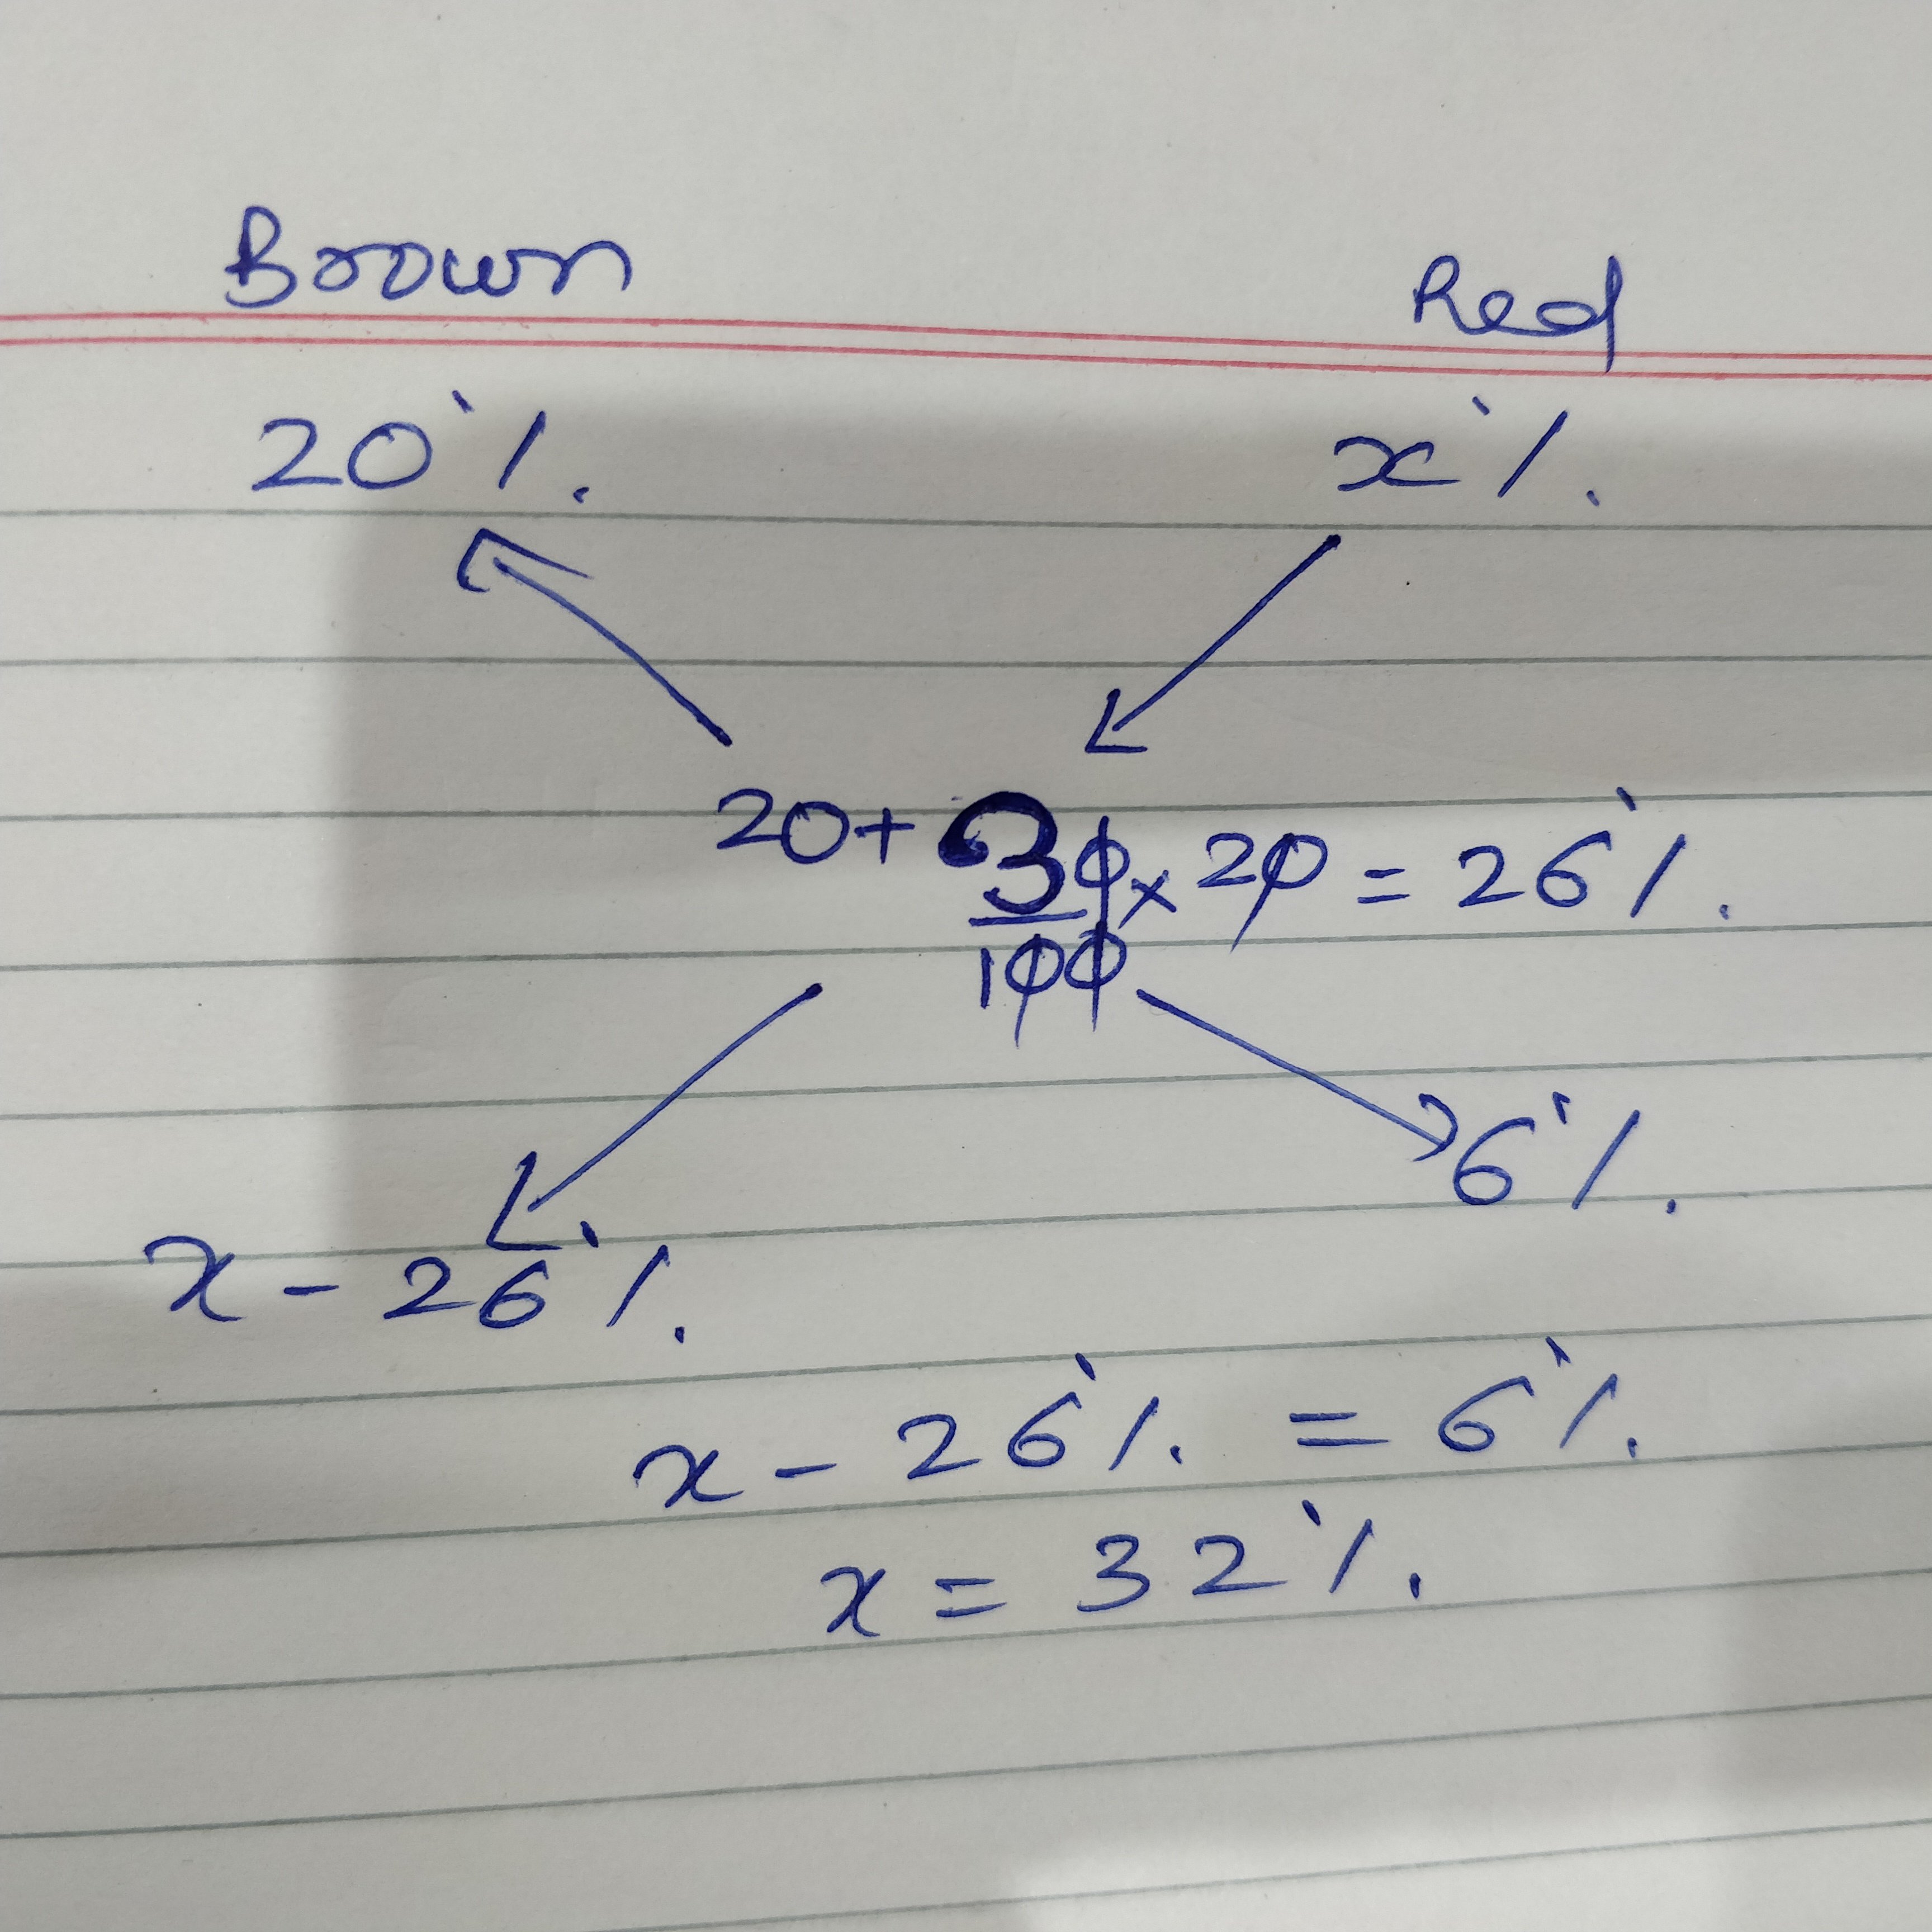 Brown Red
20% x%
20+ 30/100 x 20 = 26%
6%
x - 26%
x - 26% = 6%
x = 32%